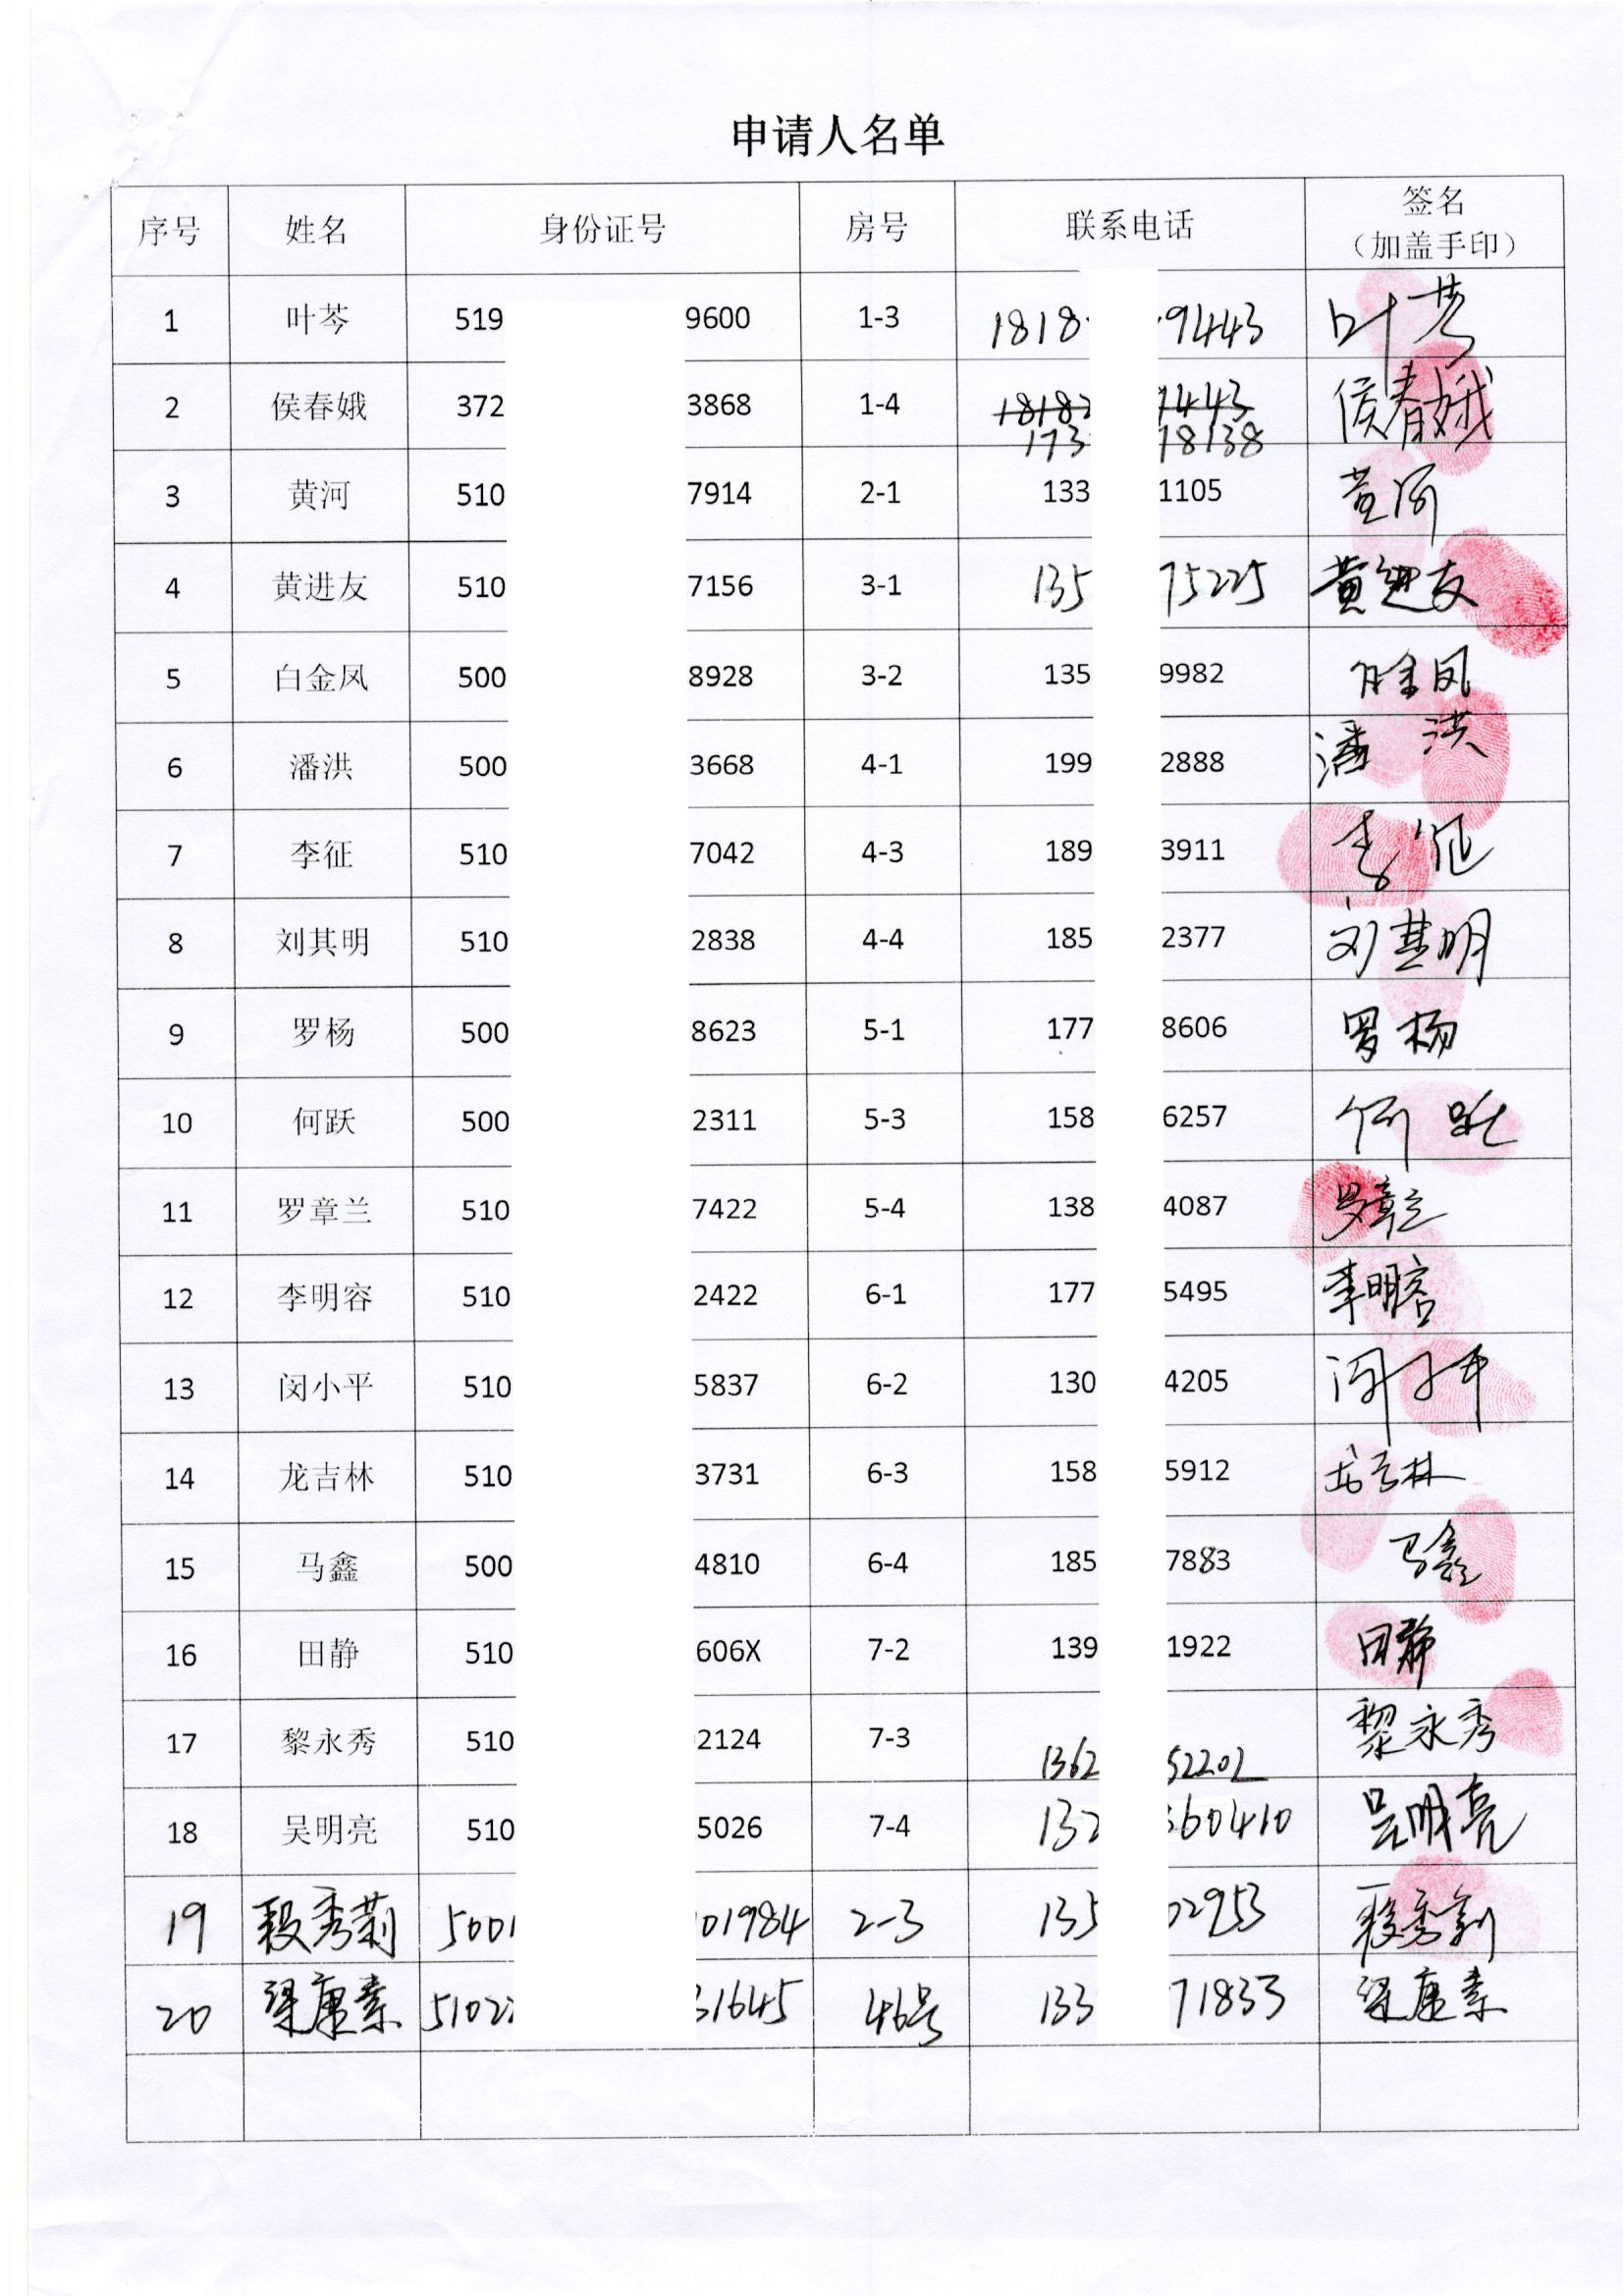 申请人名单
序号 姓名 身份证号 房号 联系电话 签名
（加盖手印）
1 叶芩 519 9600 1-3 1818 9443 叶芩
2 侯春娥 372 3868 1-4 18182 1443 侯春娥
173 18138
3 黄河 510 7914 2-1 133 1105 黄河
4 黄进友 510 7156 3-1 135 75225 黄进友
5 白金凤 500 8928 3-2 135 9982 白金凤
6 潘洪 500 3668 4-1 199 2888 潘洪
7 李征 510 7042 4-3 189 3911 李征
8 刘其明 510 2838 4-4 185 2377 刘其明
9 罗杨 500 8623 5-1 177 8606 罗杨
10 何跃 500 2311 5-3 158 6257 何跃
11 罗章兰 510 7422 5-4 138 4087 罗章兰
12 李明容 510 2422 6-1 177 5495 李明容
13 闵小平 510 5837 6-2 130 4205 闵小平
14 龙吉林 510 3731 6-3 158 5912 龙吉林
15 马鑫 500 4810 6-4 185 7883 马鑫
16 田静 510 606X 7-2 139 1922 田静
17 黎永秀 510 2124 7-3 1362 52202 黎永秀
18 吴明亮 510 5026 7-4 132 60410 吴明亮
19 段秀莉 5001 01984 2-3 135 02953 段秀莉
20 梁康素 5102 31645 46号 133 71833 梁康素